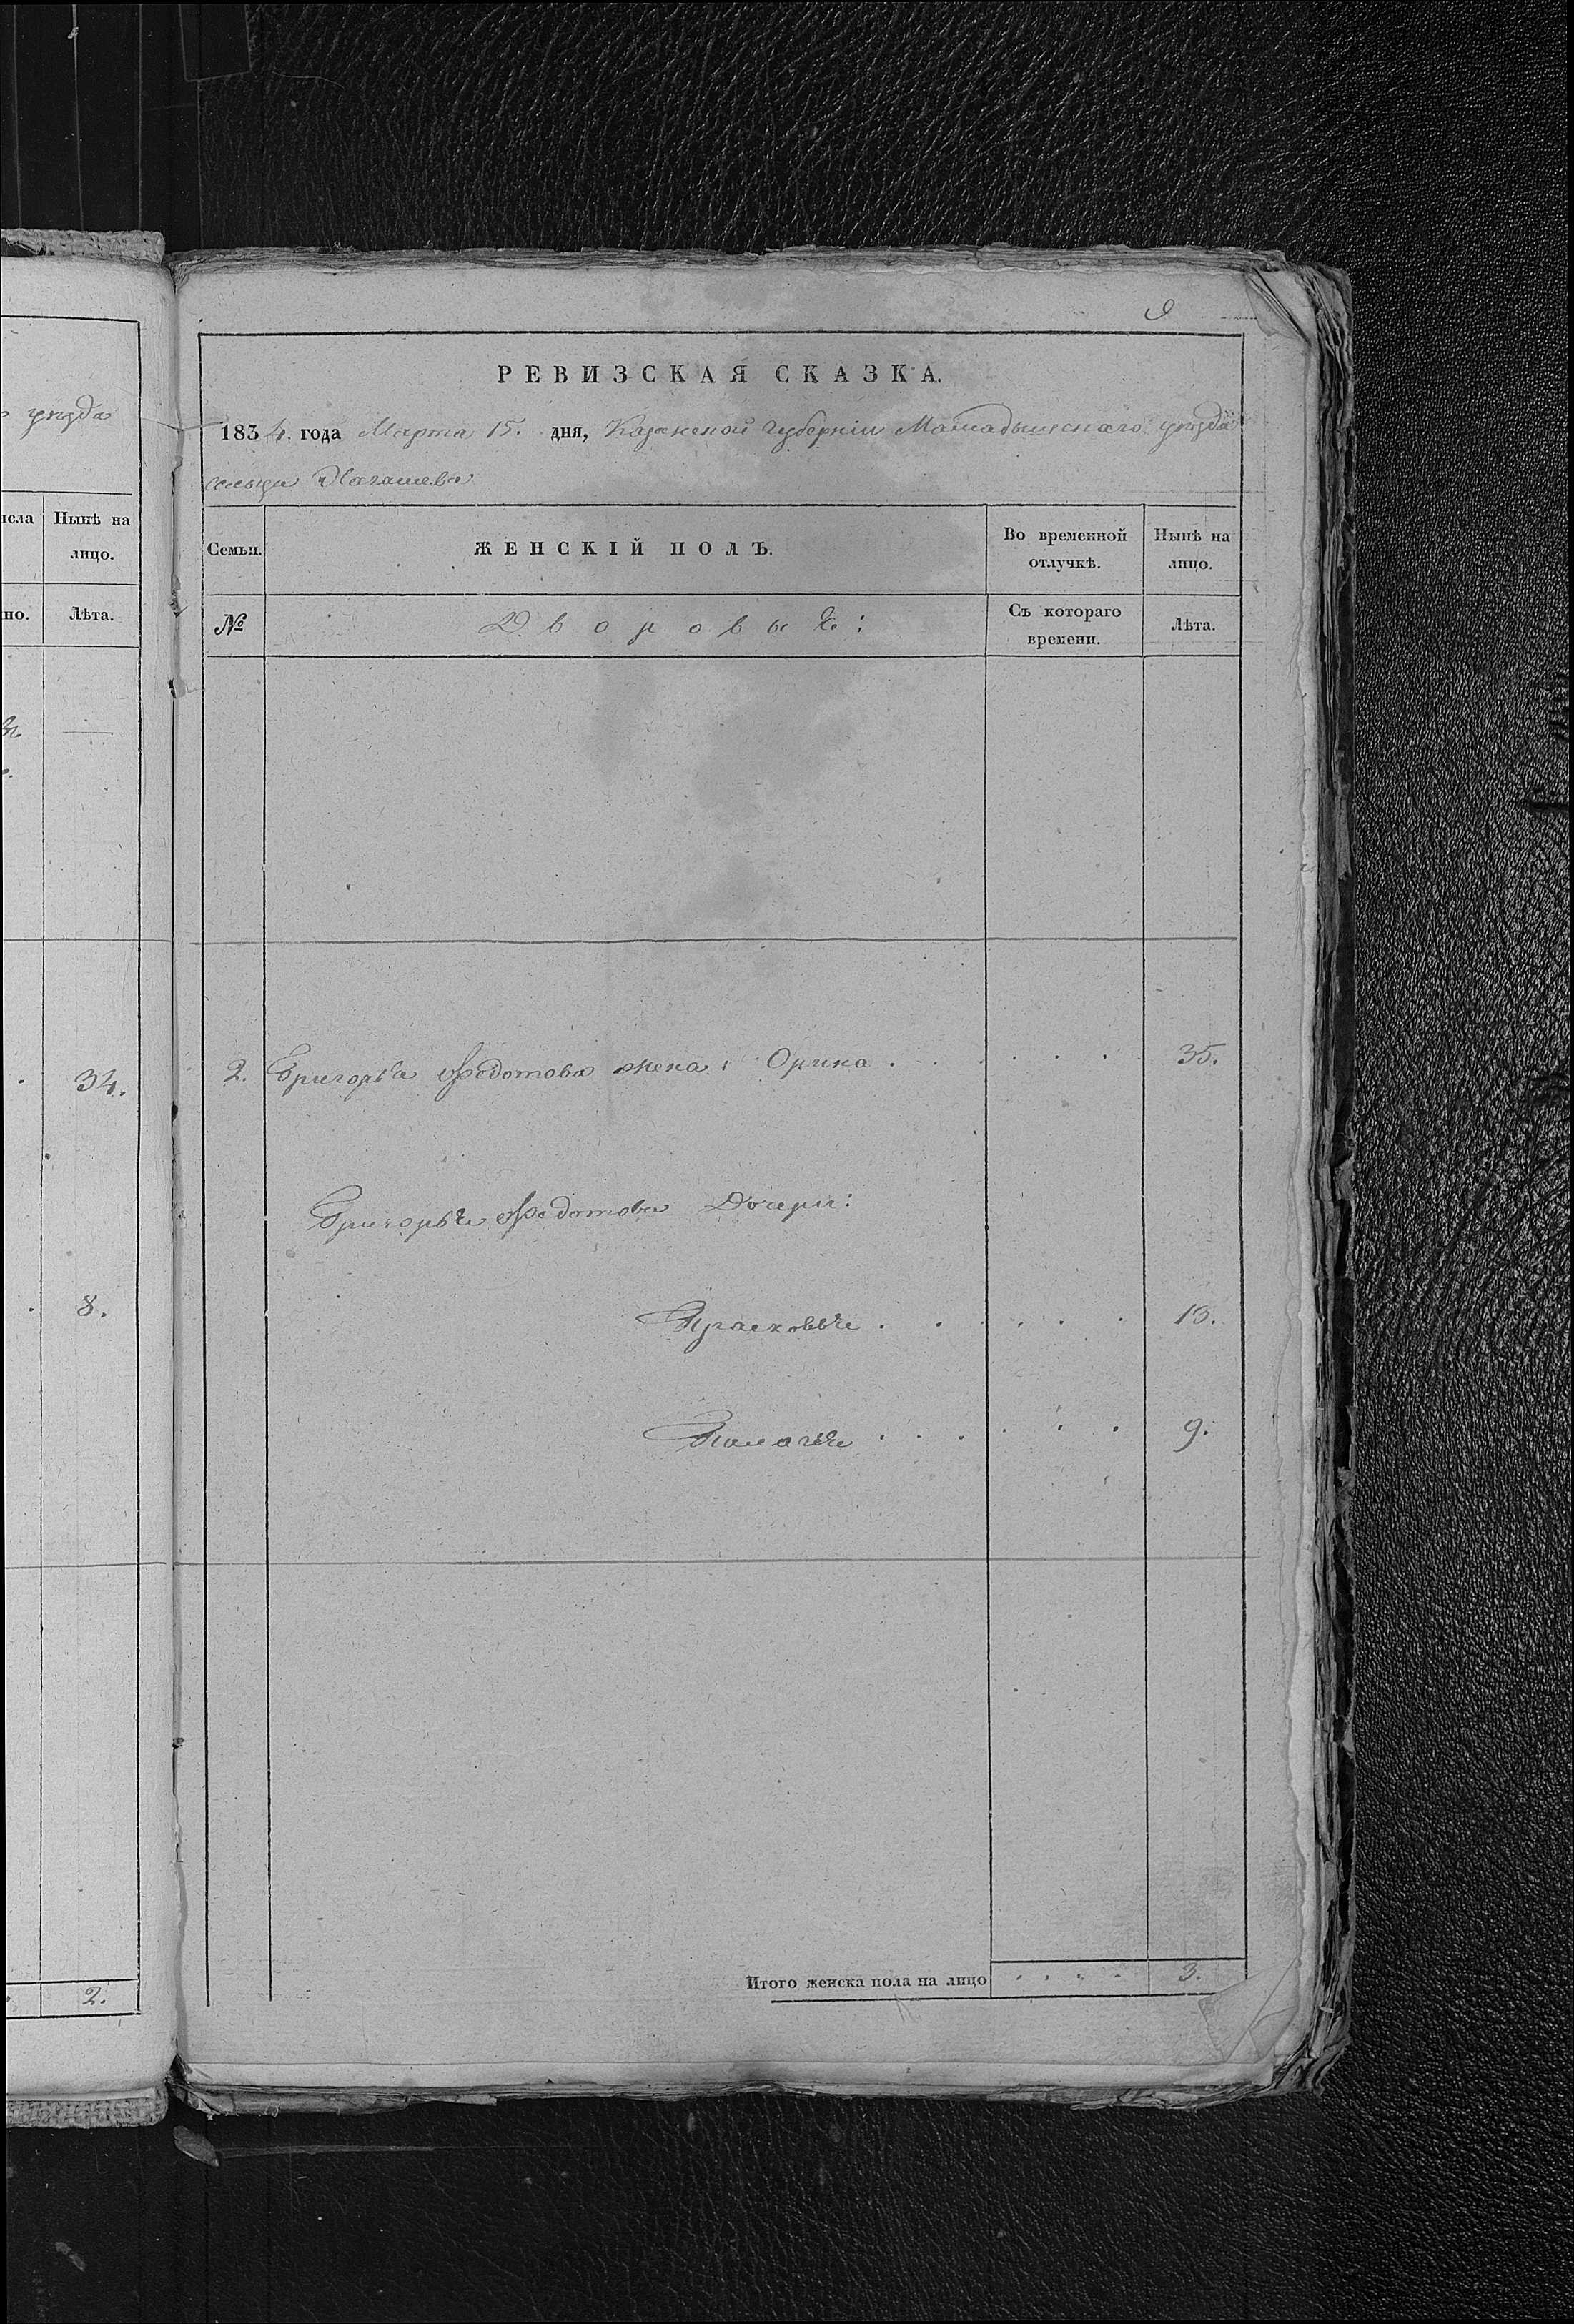 уѣзда
исла Нынѣ на
лицо.
но. Лѣта.
34.
8.
2.
9
РЕВИЗСКАЯ СКАЗКА.
1834. года Марта 15. дня, Казанской Губерніи Мамадышскаго уѣзда
сельца
Семьи. ЖЕНСКІЙ ПОЛЪ. Во временной отлучкѣ. Нынѣ на лицо.
№ Дворовые: Съ котораго времени. Лѣта.
2. Григорья Федотова жена Орина . . . . . . 35.
Григорья Федотова Дочери:
Прасковья . . . . . . 13.
Палагѣя . . . . . . 9.
Итого женска пола на лицо . . . . 3.